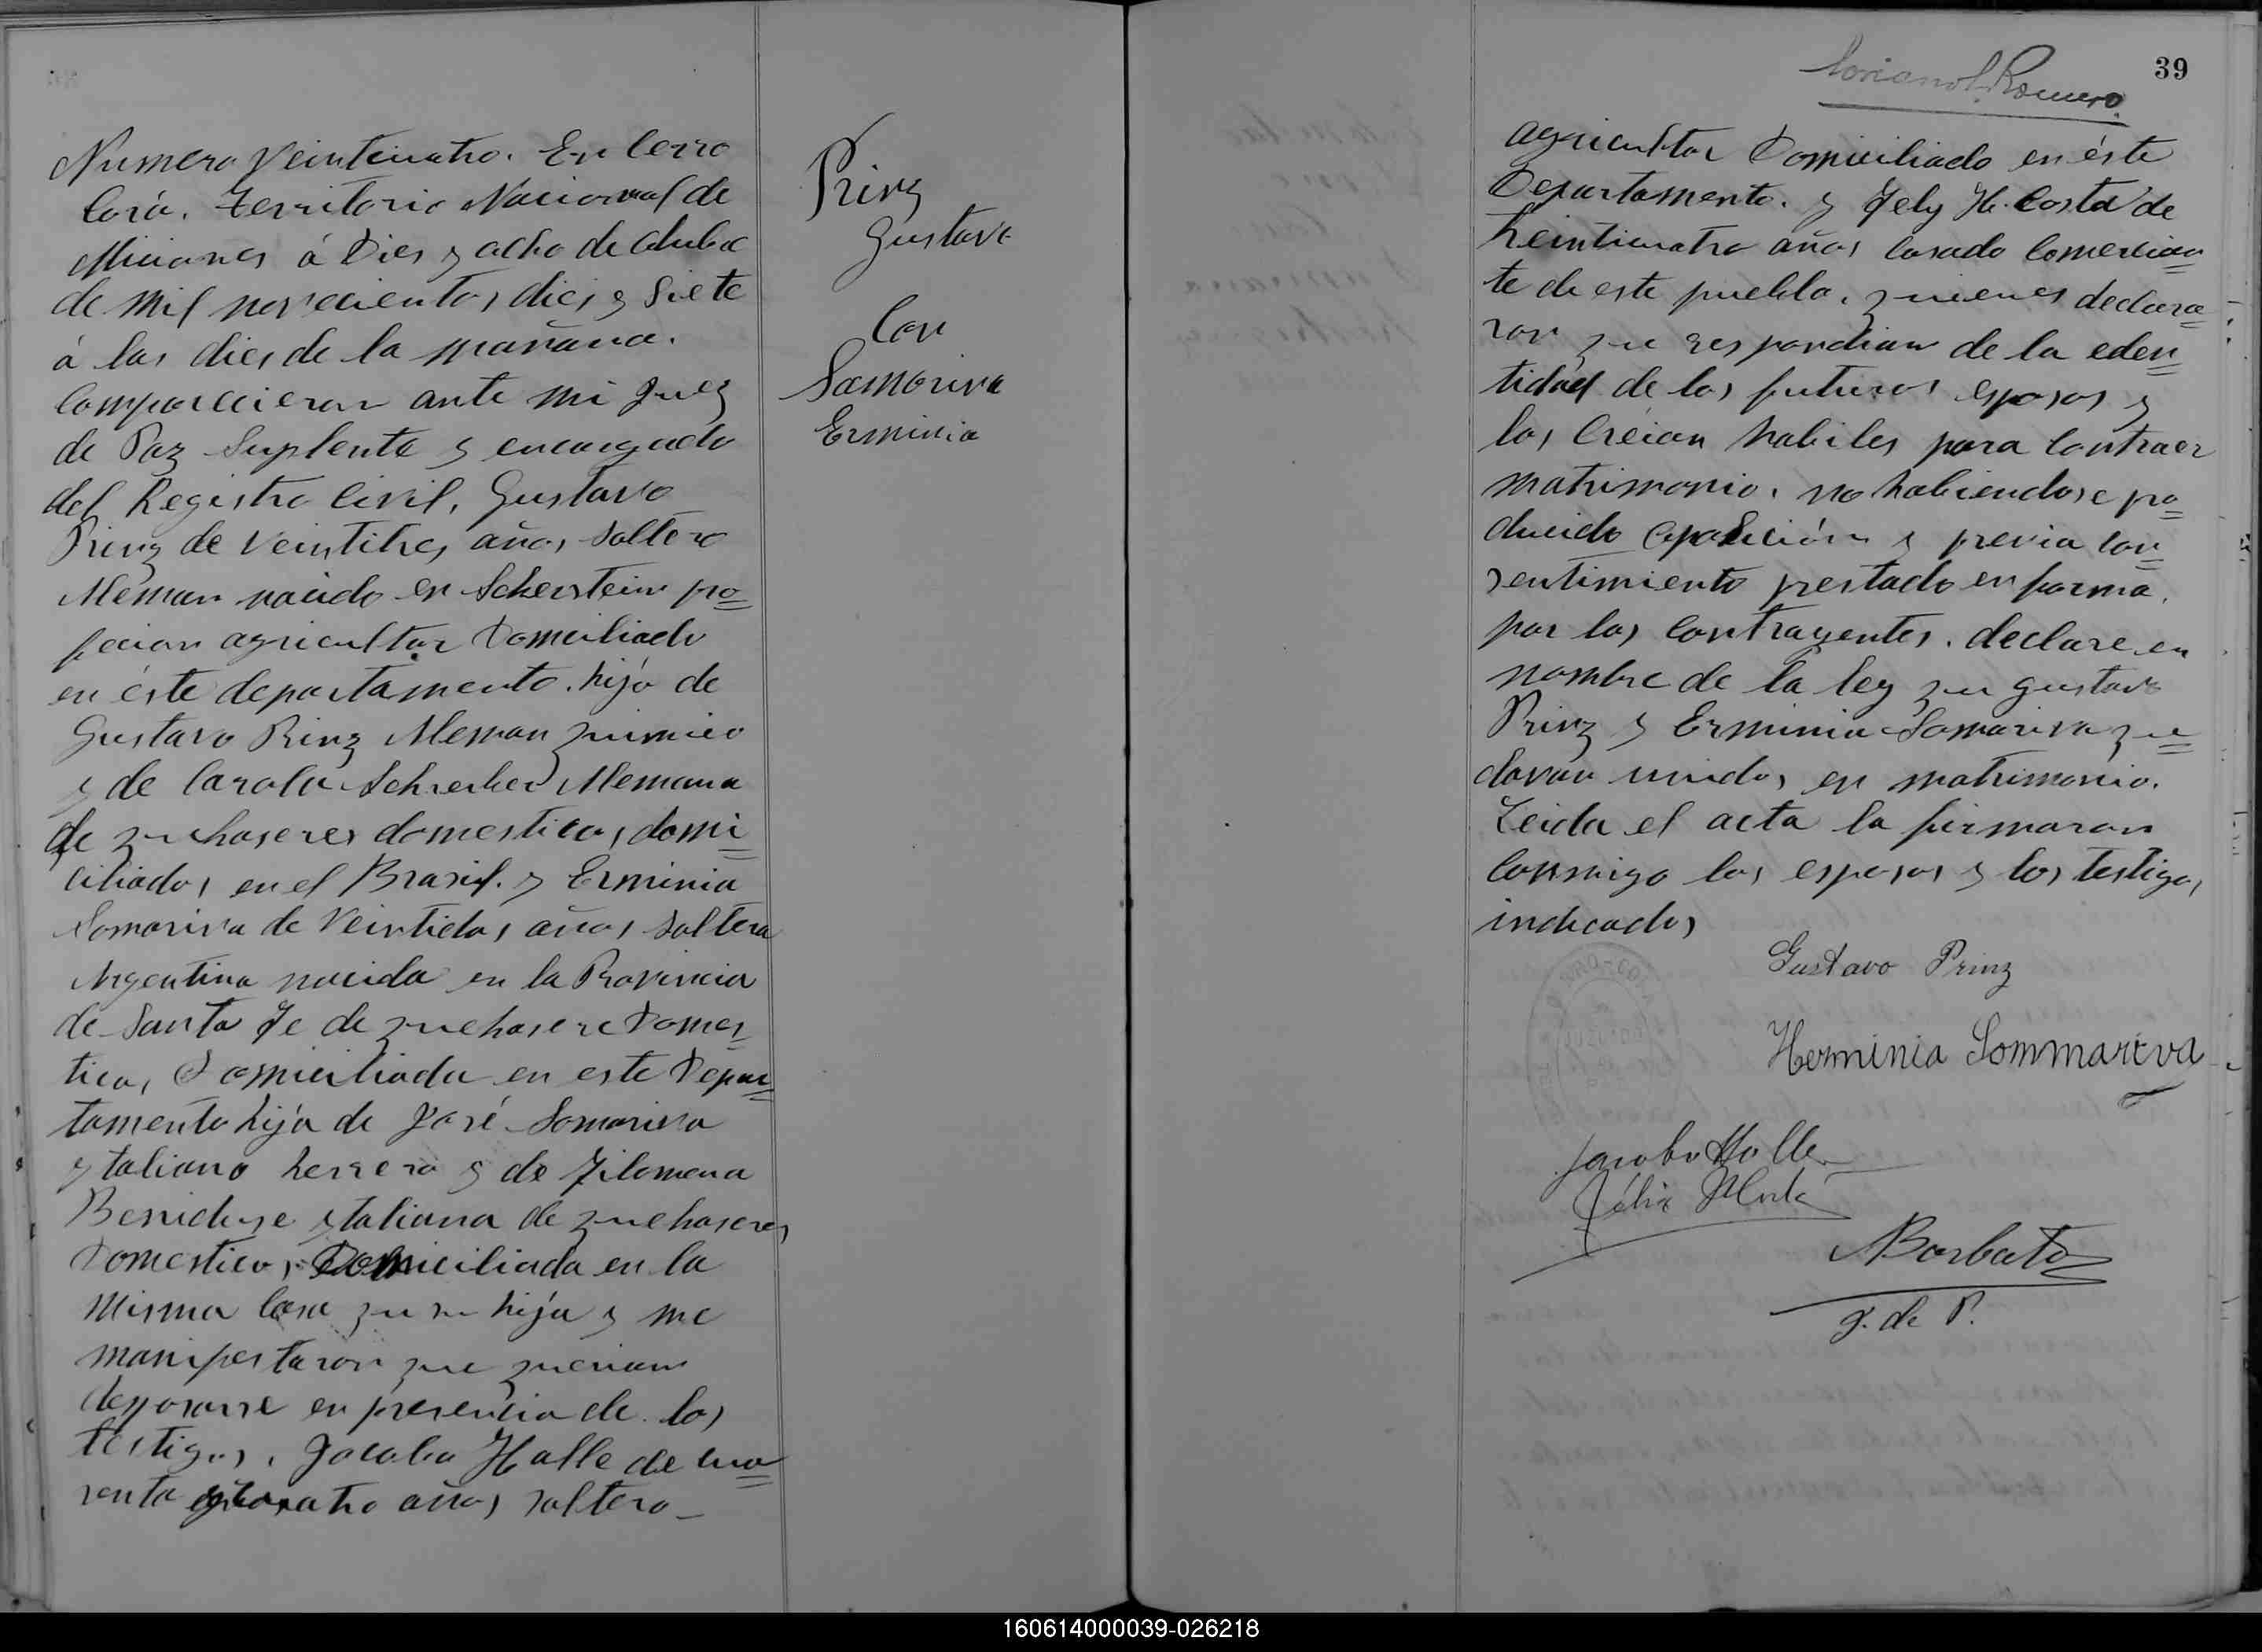 Numero Veinticuatro. En Cerro
Corá. Territorio Nacional de
Misiones á Dies y ocho de
de mil novecientos dies y siete
á las dies de la mañana.
comparecieron ante mi Juez
de Paz Suplente y encargado
del Registro Civil, Gustavo
Prinz de Veintitres años soltero
Aleman nacido en Scherstein pro=
fecion agricultor Domiciliado
en éste departamento. hijo de
Gustavo Prinz Aleman quimico
y de Carola Schreiber Alemana
de quehaseres domesticos, domi=
ciliados en el Brasil. y Erminia
Somariva de Veintidos años soltera
Argentina nacida en la Provincia
de Santa Fe de quehasere Domes=
ticos, Domiciliada en este Depar=
tamento hija de José Somariva
ytaliano herrero y de Filomena
ytaliana de quehaseres
Domesticos, Domiciliada en la
misma Casa que su hija y me
manifestaron que querian
desposarse en presencia de los
testigos, Jacobo Halle de cua=
renta cuatro años soltero
Prinz
Gustavo
Con
Somariva
Erminia
39
Romero
agricultor Domiciliado en éste
Departamento. y Fely H. Costa de
Veinticuatro años casado Comercian=
te de este pueblo, quienes declara=
ron que respondian de la eden=
tidad de los futuros esposos y
los Creian habiles para Contraer
matrimonio, no habiendose pro=
ducido oposición y previa con=
sentimiento prestado en forma,
por los contrayentes, declare en
nombre de la ley que Gustavo
Prinz y Erminia Somariva que=
davan unidos en matrimonio.
Leida el acta la firmaron
conmigo los esposos y los testigos
indicados
Gustavo Prinz
Herminia Sommariva
Jacobo Halle
Félix
Barbato
J. de P.
160614000039-026218